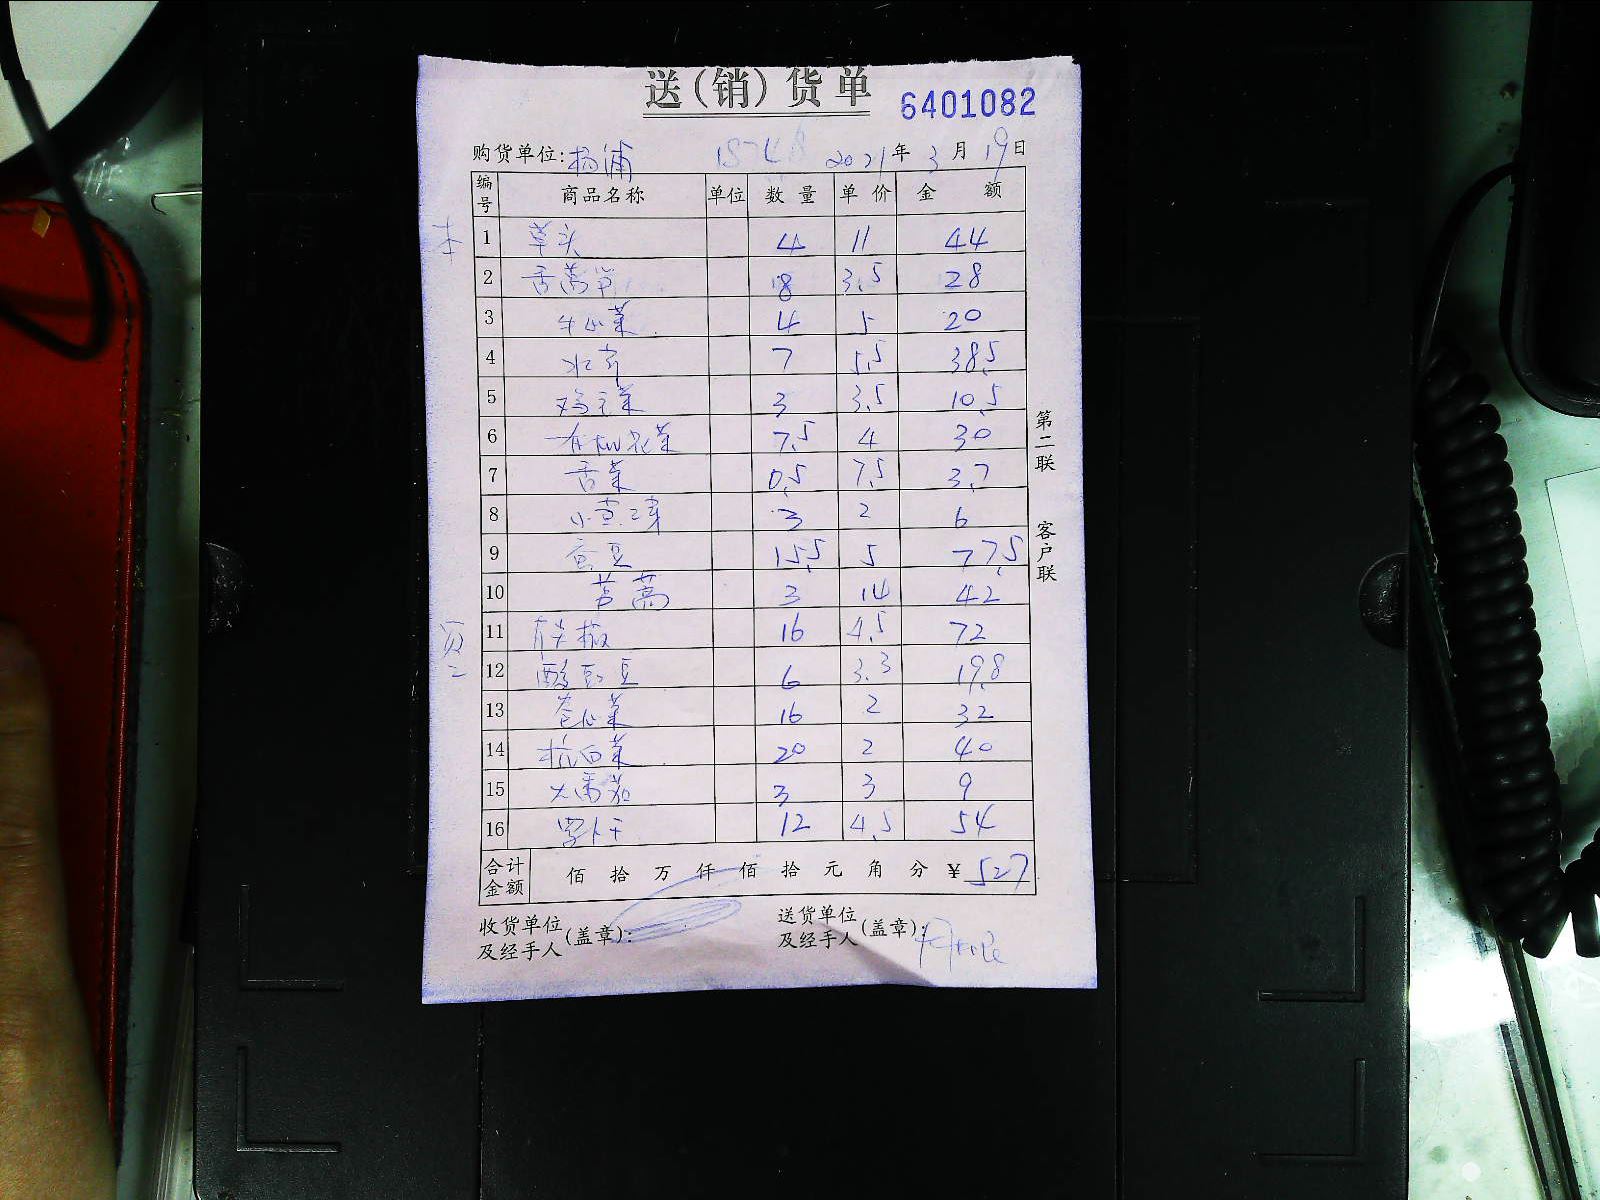 送(销)货单
6401082
购货单位:杨浦 2021年3月19日
编号 商品名称 单位 数量 单价 金额
1 草头 4 11 44
2 8 3.5 28
3 牛心菜 4 5 20
4 水芹 7 5.5 38.5
5 鸡毛菜 3 3.5 10.5
6 有机花菜 7.5 4 30
7 0.5 7.5 3.7
8 3 2 6
9 蚕豆 15.5 5 77.5
10 3 14 42
11 16 4.5 72
12 酸豇豆 6 3.3 19.8
13 卷心菜 16 2 32
14 杭白菜 20 2 40
15 大番茄 3 3 9
16 萝卜干 12 4.5 54
合计金额 佰拾万仟佰拾元角分¥527
收货单位及经手人(盖章):
送货单位及经手人(盖章):
第二联 客户联